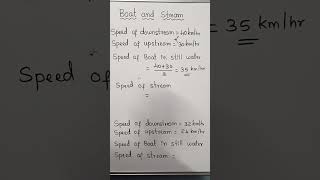 Boat and Stream
Speed of downstream = 40 km/hr
Speed of upstream = 30 km/hr
Speed of Boat in still water
= 40+30/2 = 35 km/hr
Speed of stream
=
Speed of downstream = 32 km/hr
Speed of upstream = 24 km/hr
Speed of Boat in still water
Speed of stream =
35 km/hr
Speed